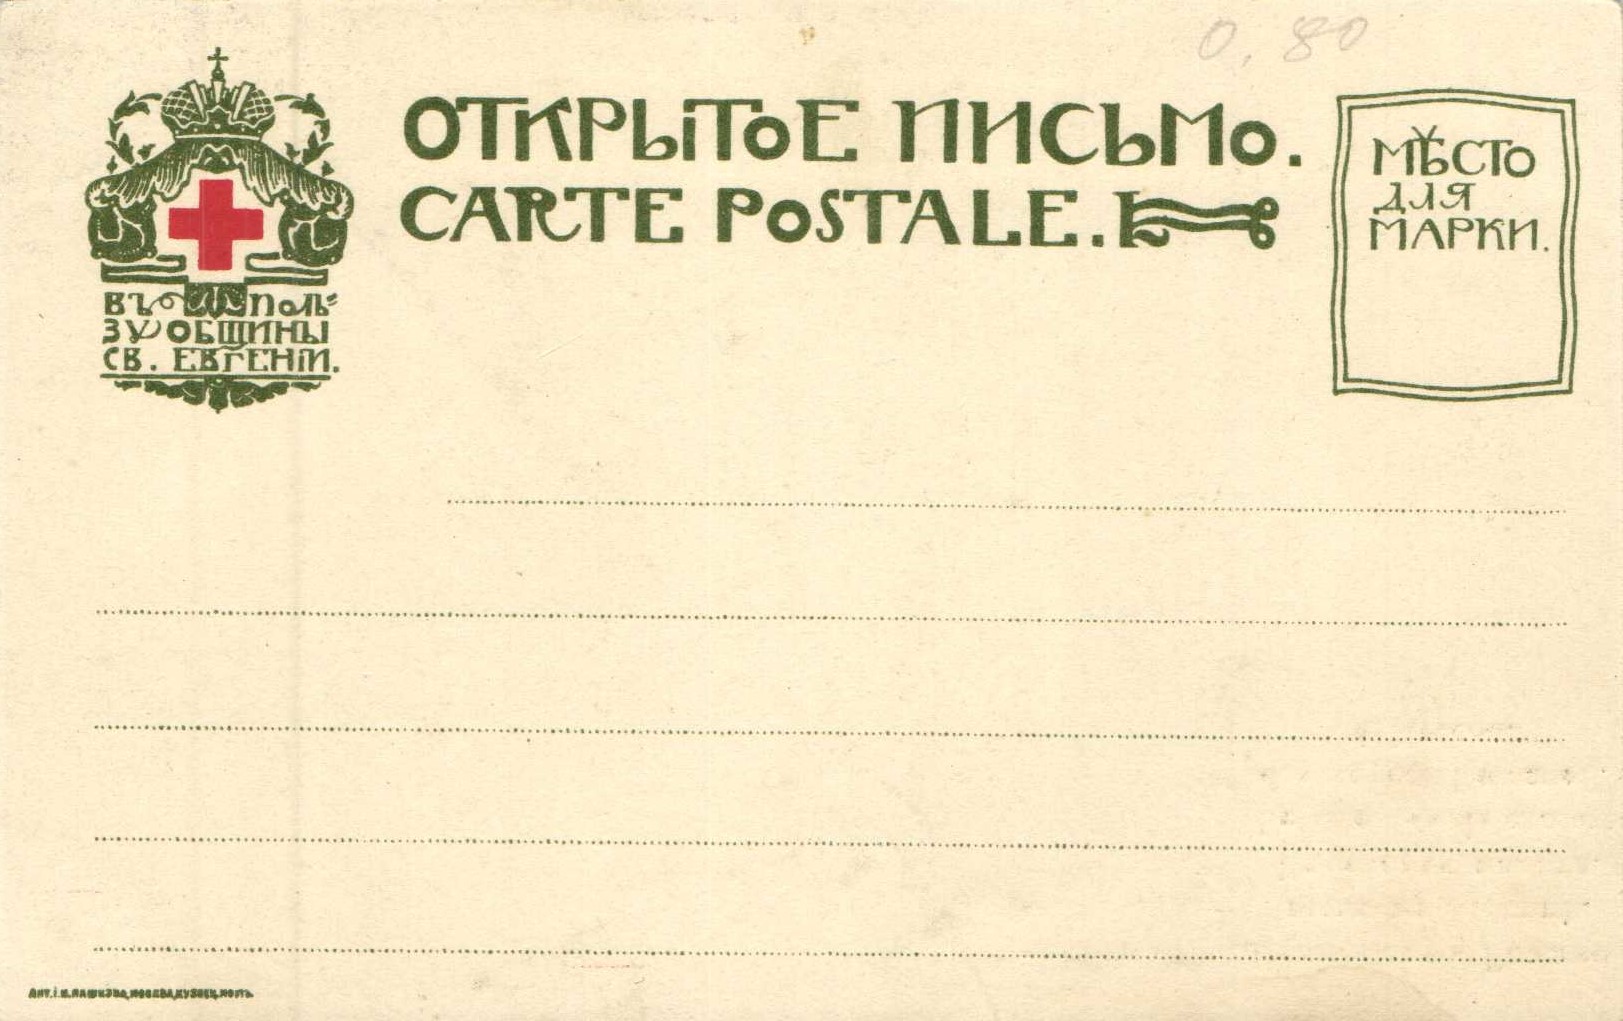 0.80
ОТКРЫТОЕ ПИСЬМО.
CARTE POSTALE.
МѢСТО
ДЛЯ
МАРКИ.
ВЪ ПОЛЬ-
ЗУ ОБЩИНЫ
СВ. ЕВГЕНІИ.